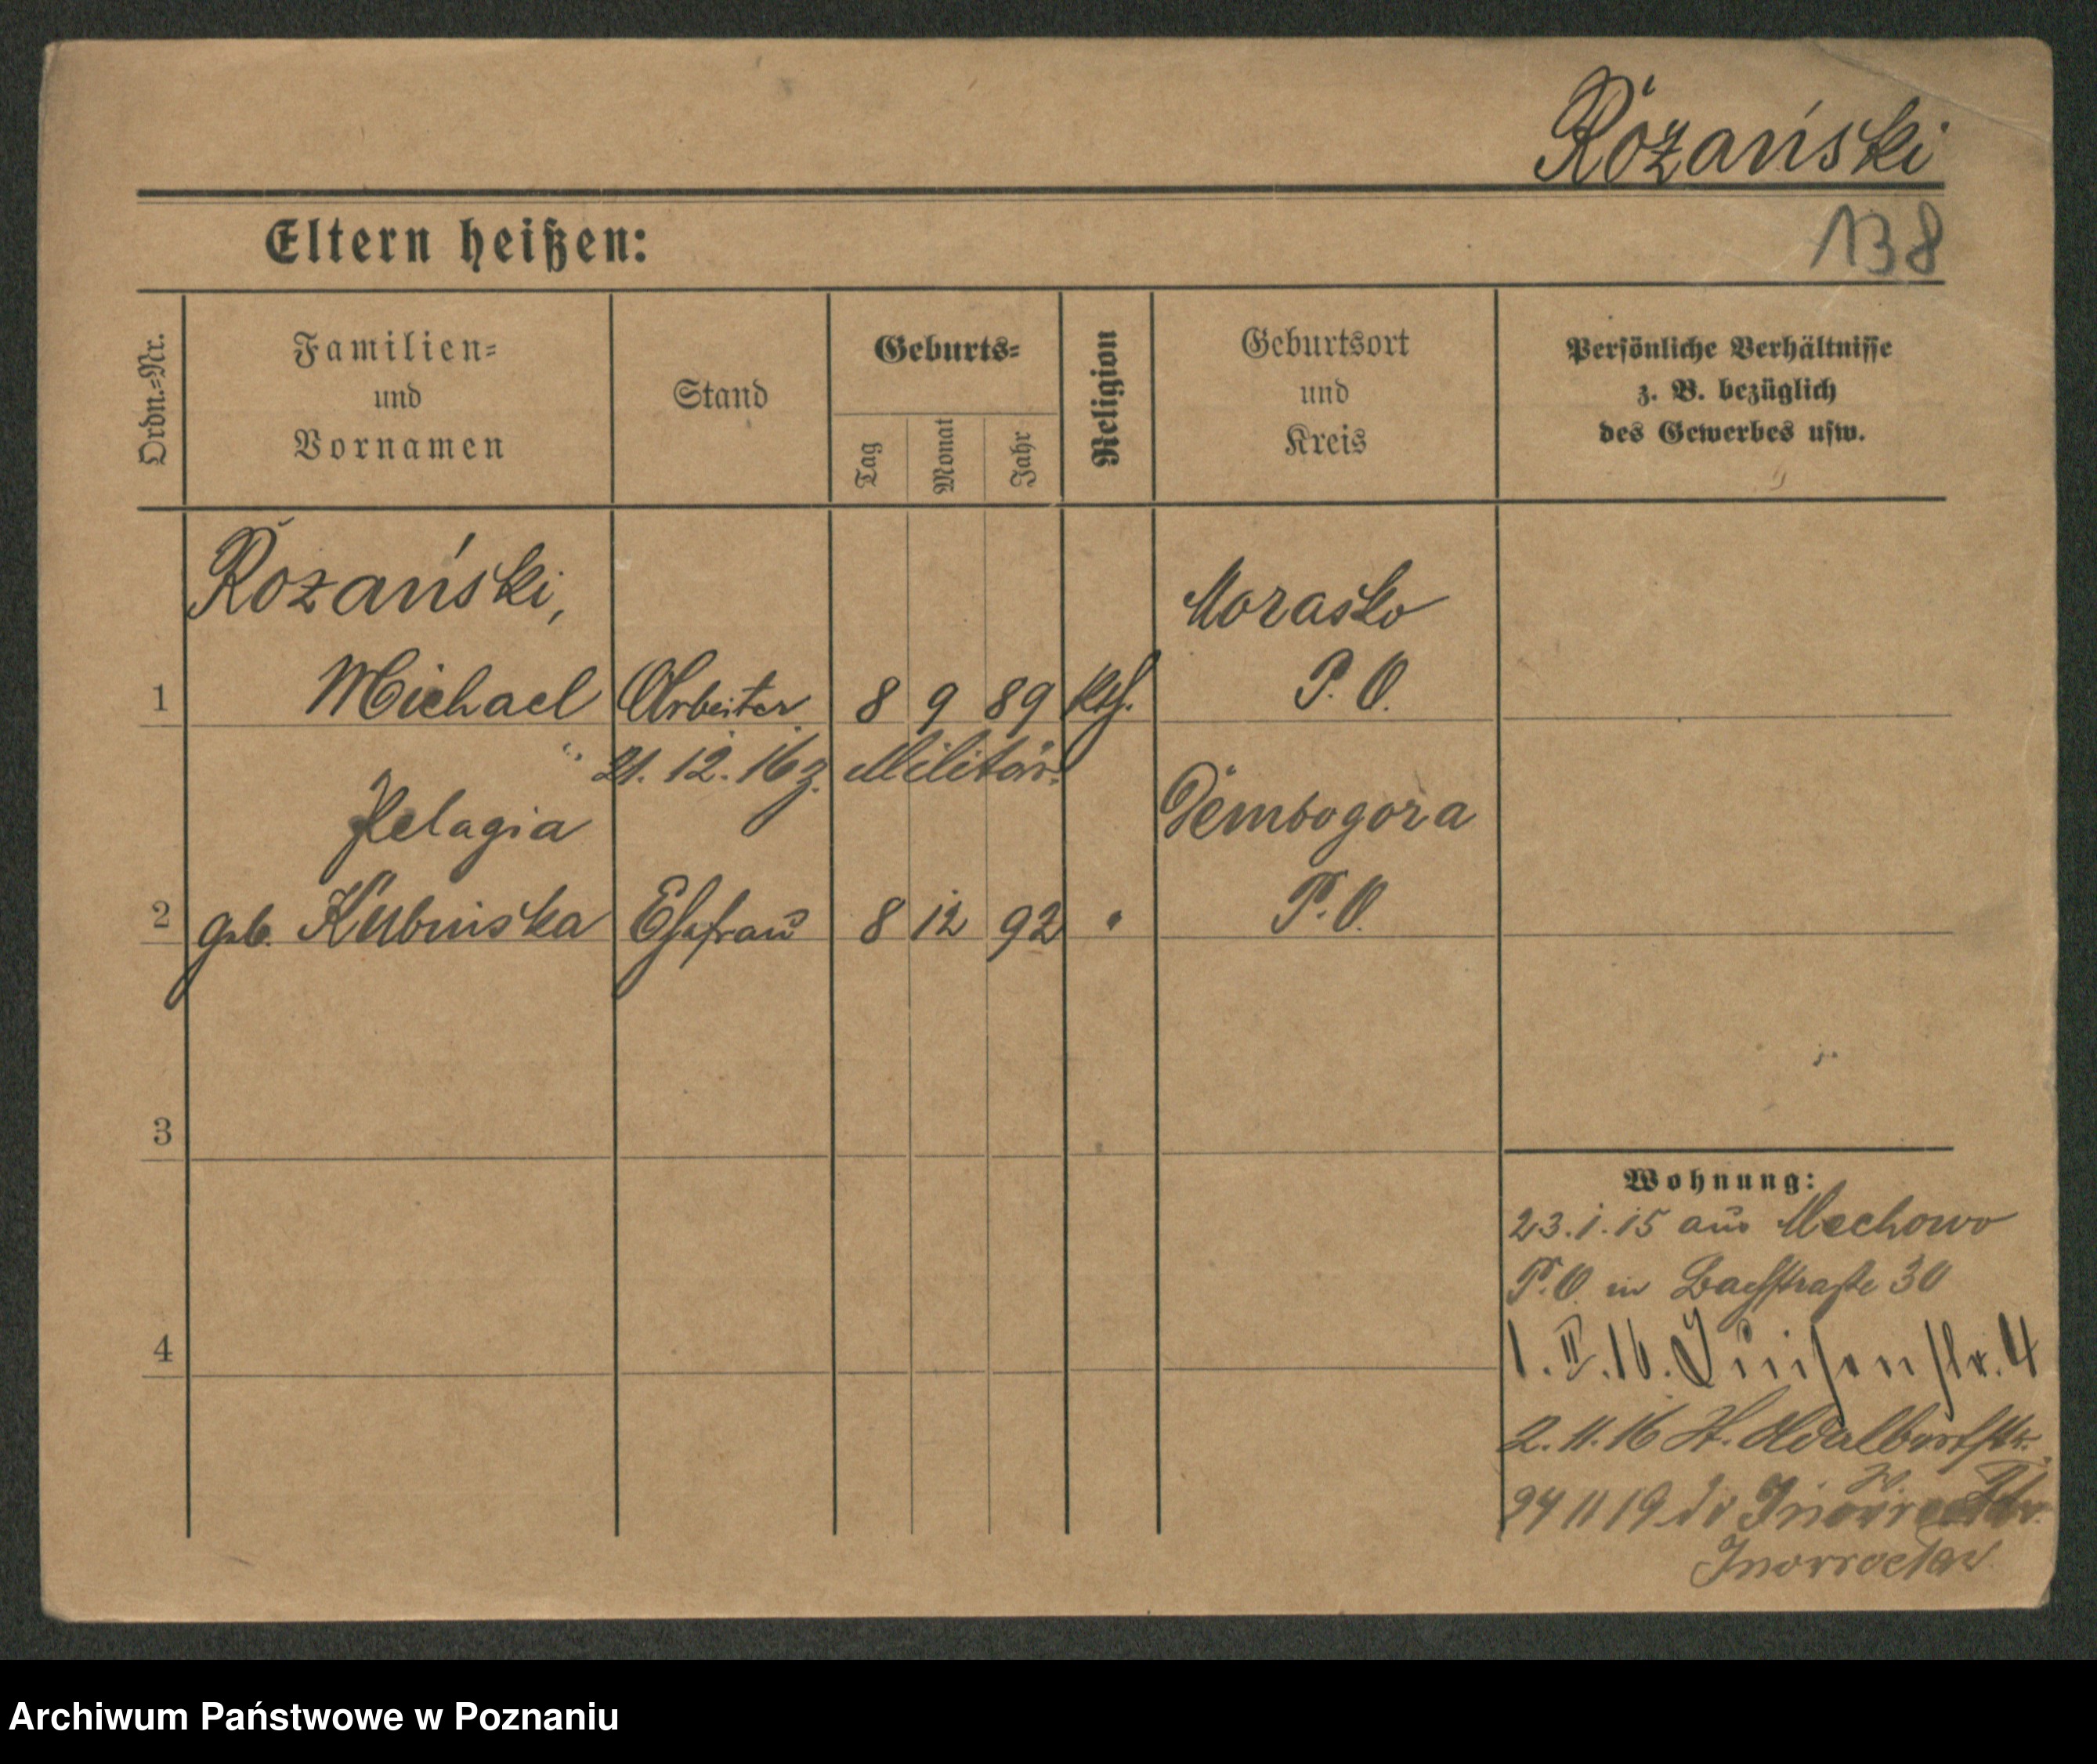 Różański
Eltern heißen:
138
Ordn.-Nr.
Familien-
und
Vornamen
Stand
Geburts-
Tag
Monat
Jahr
Religion
Geburtsort
und
Kreis
Persönliche Verhältnisse
z. B. bezüglich
des Gewerbes usw.
Rozański,
Morasko
1 Michael Arbeiter 8 9 89 kth. P. O.
21. 12. 16 z. Militär.
Pelagia Dembogora
2 geb. Kubinska Ehefrau 8 12 92 " P. O.
3
4
Wohnung:
23.1.15 aus Mechowo
P. O. in Bachstraße 30
1. II. 16. Luisenstr. 4
2. 11. 16
24 11 19
Archiwum Państwowe w Poznaniu